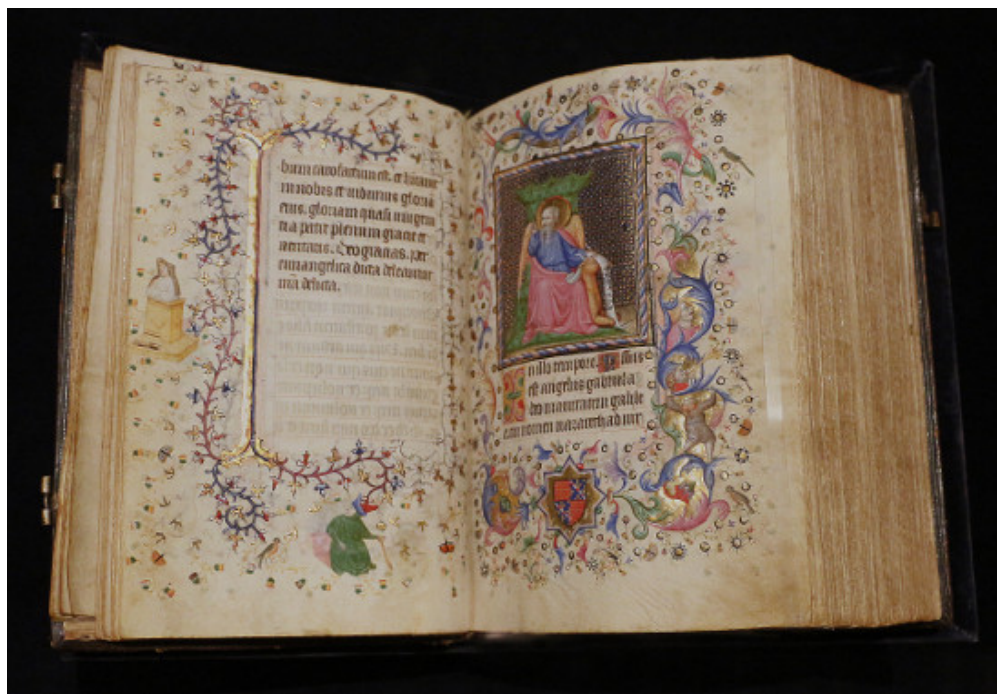 bum caro factum est. et habitavit
in nobis et vidimus gloria
eius. gloriam quasi unigeni
ti a patre plenum gracie et
veritatis. Deo gracias. Per
evangelica dicta deleantur
nra delicta.
In illo tempore Missus
est angelus gabriel a
deo in civitatem galilee
cui nomen nazareth ad vir